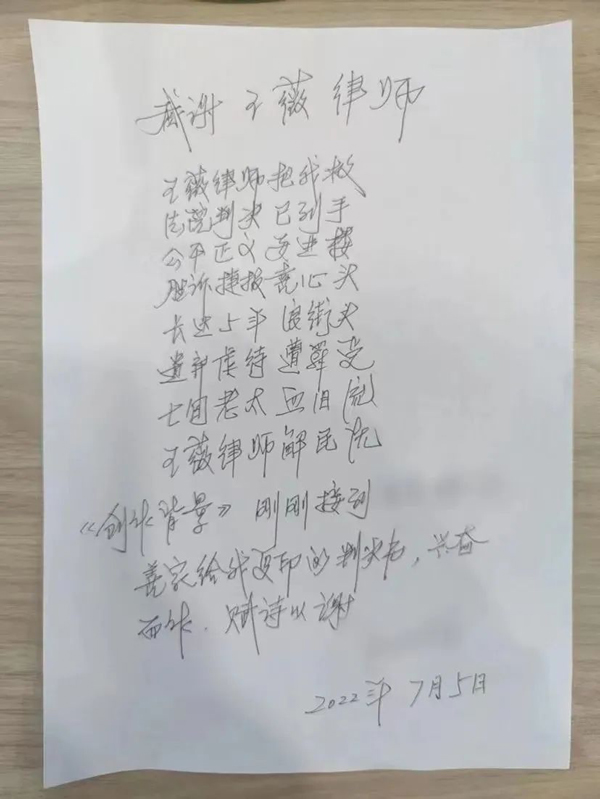 感谢王薇律师
王薇律师把我救
法院判决已到手
公平正义要迎接
胜诉捷报亮心头
长达5年流街头
遭罪受
七旬老太血泪
王薇律师解民忧
《创作背景》刚刚接到
给我复印的判决书，兴奋
而作．赋诗以谢
2022年7月5日